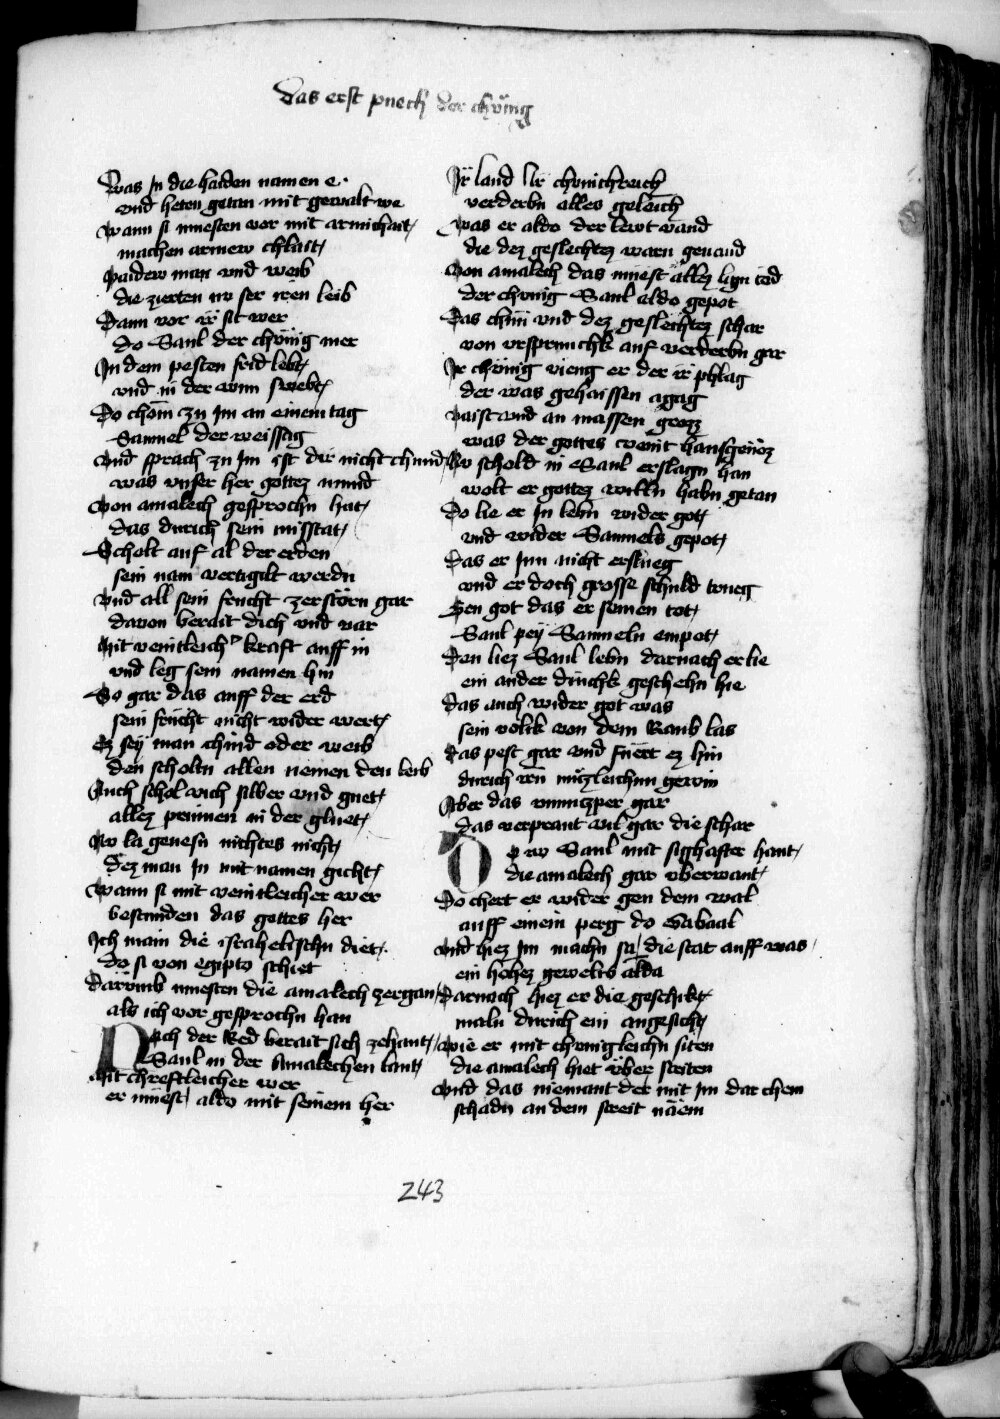 Das erst puech der chünig
Was In die haiden namen e.
vnd heten getan mit gewalt we
Wann si muesten vor mit armichait
machen armew chlait
Paidew man vnd weib
die zierten nv ser iren leib
Dann vor ir sit wer
do Saul der chünig mer
In dem pesten frid lebt
vnd in der wunn swebt
Do chom zu Im an einem tag
Samuel der weissag
Vnd sprach zu Im ist dir nicht chund
was vnser her gottez mund
Von amalech gesprochn hat
das durich sein misstat
Scholt auf al der erden
sein nam vertigilt werdn
Vnd all sein frucht zerstörn gar
dauon berait dich vnd var
Mit veintleicher kraft auff in
vnd leg sein namen hin
So gar das auff der erd
sein frücht nicht wider wert
Ez sey man chind oder weib
den scholtu allen nemen den leib
Auch schol vich silber vnd guet
allez prinnen in der gluet
Nv la genesn nichtes nicht
dez man In mit namen gicht
Wann si mit veintleicher wer
bestunden das gottes her
Ich main die israhelischn diet
do si von egipto schiet
Darumb muesten die amalech zergan
als ich vor gesprochn han
Nach der Red berait sich zehant
Saul in der Amalechen lant
Mit chreftleicher wer
er müest aldo mit seinem her
Ir land Ir chunichreich
verderbn alles geleich
Was er aldo der lewt vand
die dez geslechtez warn genand
Von amalech das muest allez lign tod
der chunig Saul aldo gepot
Das chin vnd dez geslechtez schar
von vrsprunchk auf verderbn gar
Ir chünig vieng er der ir phlag
der was gehaissen agag
Vaist vnd an massen grozz
was der gottes veint hausgenoz
Nv schold in Saul erslagn han
wolt er gottez willn habn getan
Do lie er In lebn wider got
vnd wider Samuels gepot
Das er Inn nicht erslueg
vnd er doch grosse schuld trueg
Gen got das er seinen tot
Saul pey Samueln empot
Den liez Saul lebn darnach er lie
ein ander dinchk geschehn hie
Das auch wider got was
sein volck von dem Raub las
Das pest gar vnd fuert ez hin
durich irn müzleichnn gewin
Aber das vnnuczper gar
das verprant vil gar die schar
Do nv Saul mit sighafter hant
die amalech gar vberwant
Do chert er wider gen dem wal
auff einem perg do Gabaal
Vnd hiez Im machn sa die stat auff was
ein hohez gewelb alda
Darnach hiez er die geschikt
maln durich ein angesicht
Wie er mit chunigleichn siten
die amalech hiet über striten
Vnd das niemant der mit Im dar chem
schadn an dem streit näem
243